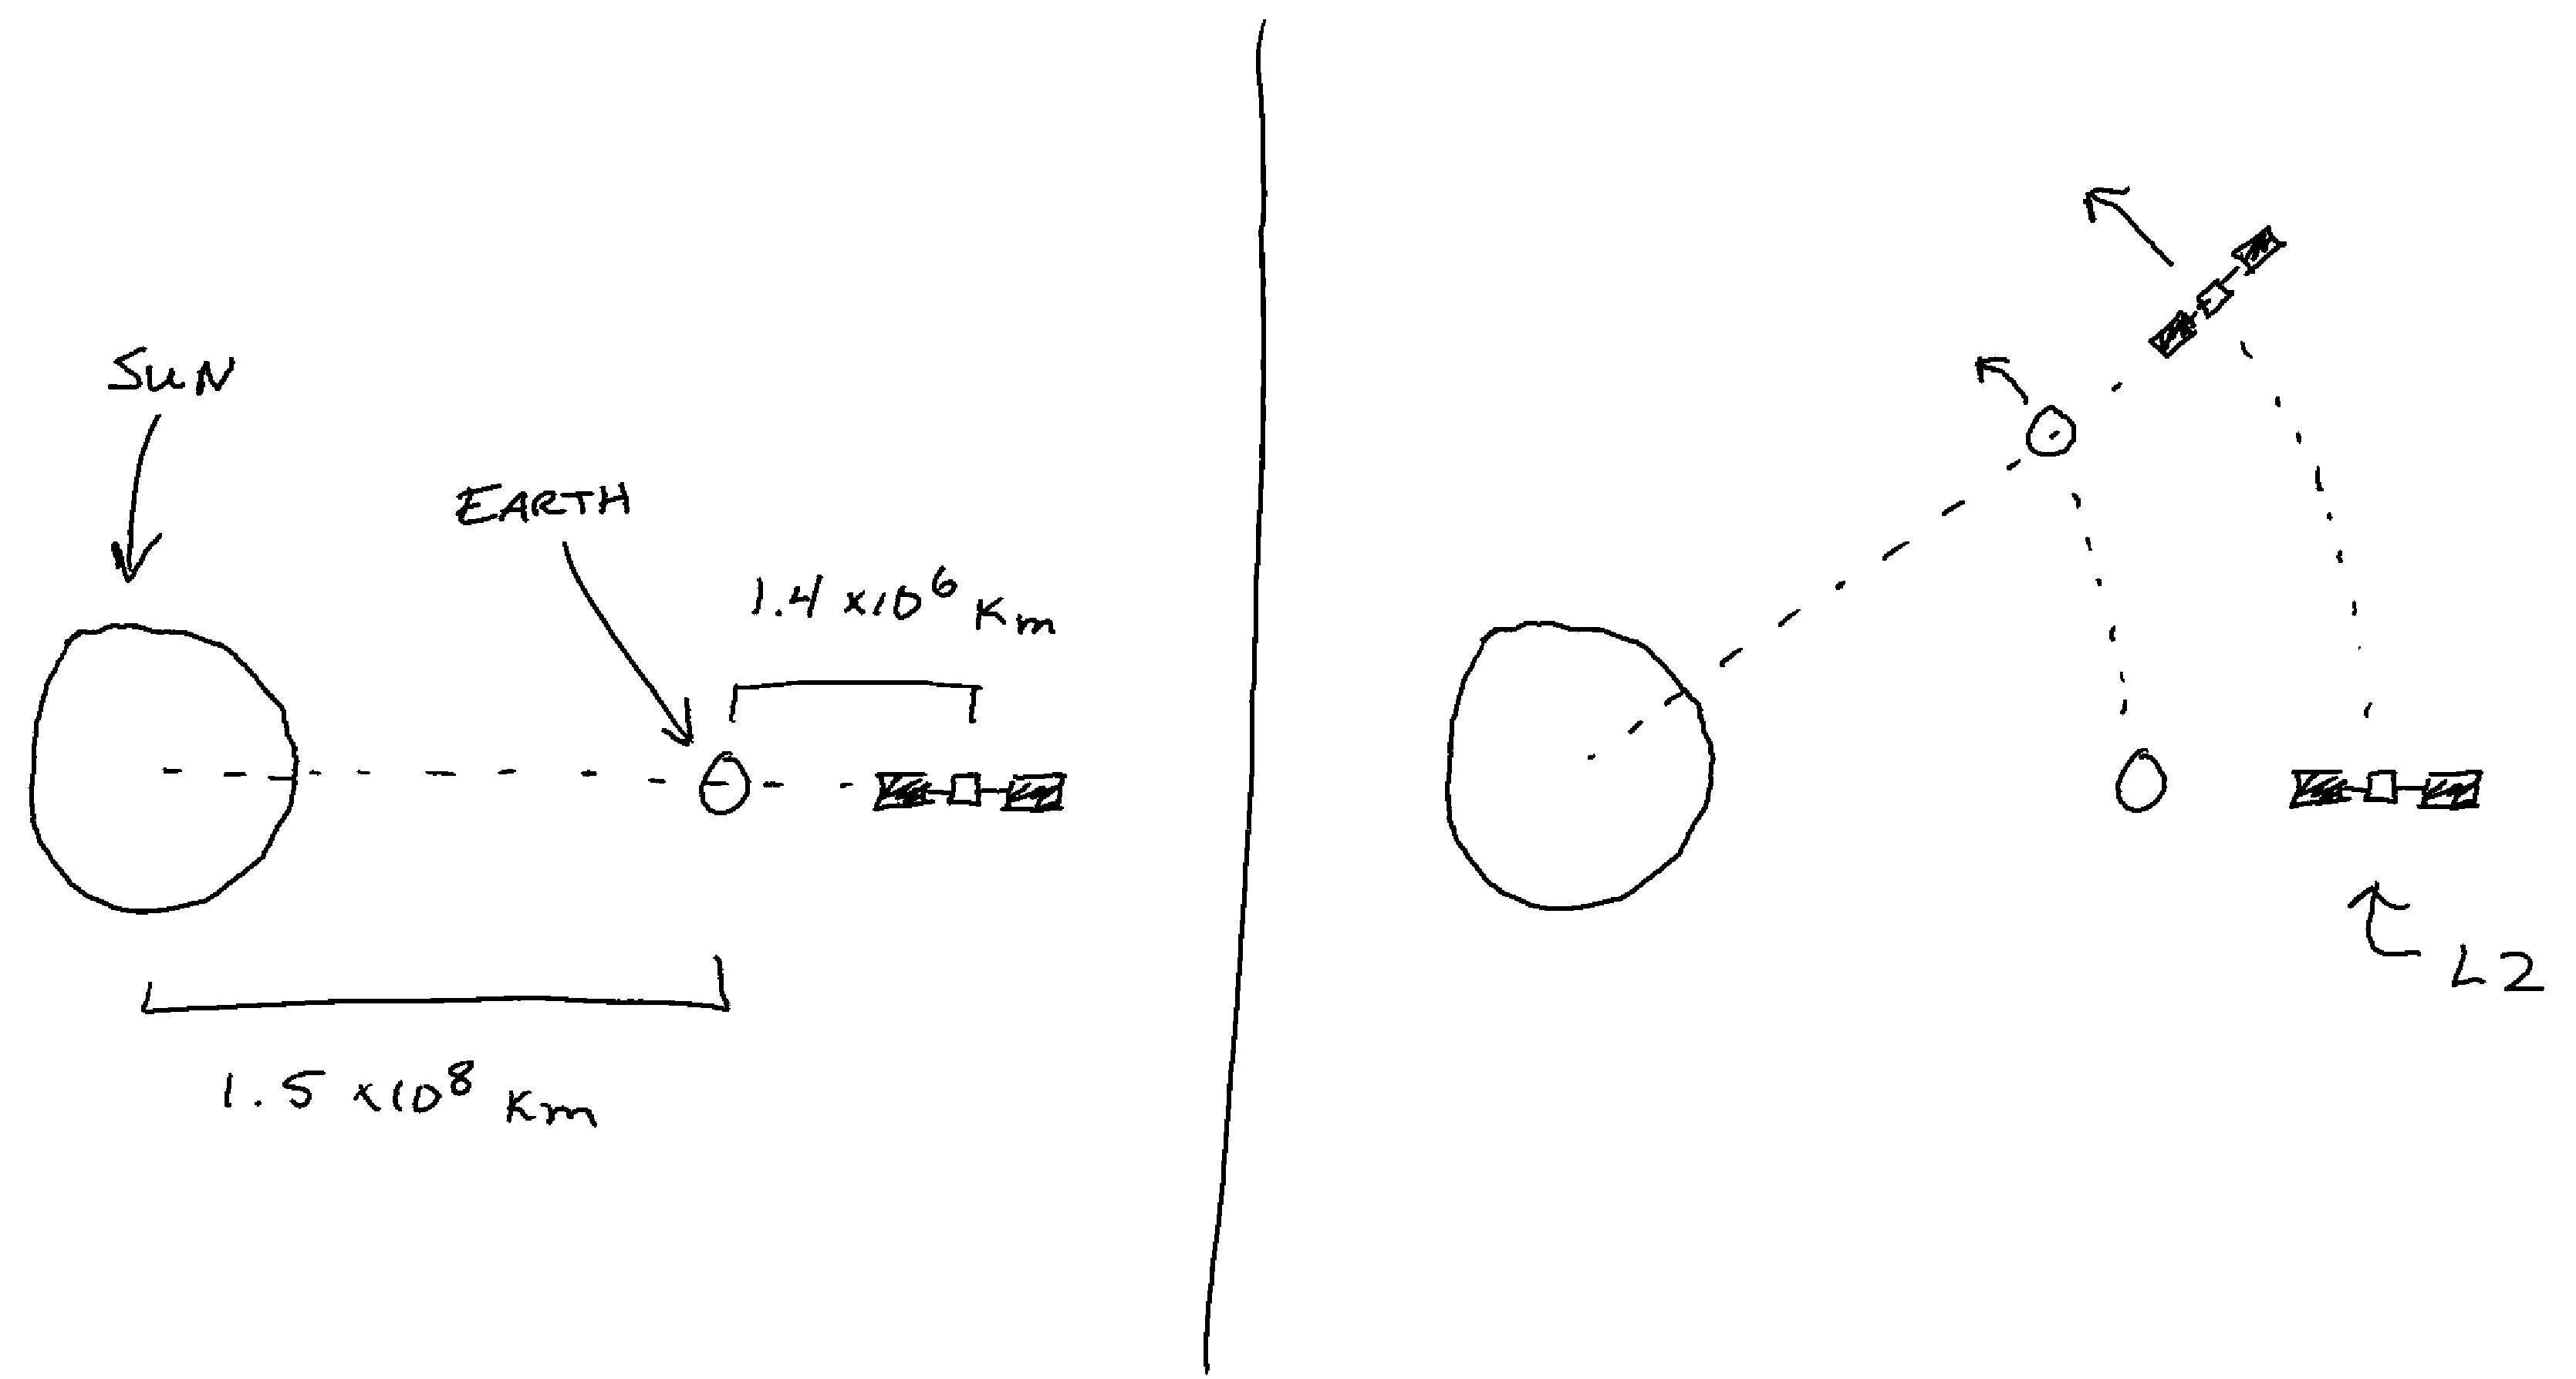 SUN
EARTH
1.4 ×10⁶ Km
1.5 ×10⁸ Km
L2